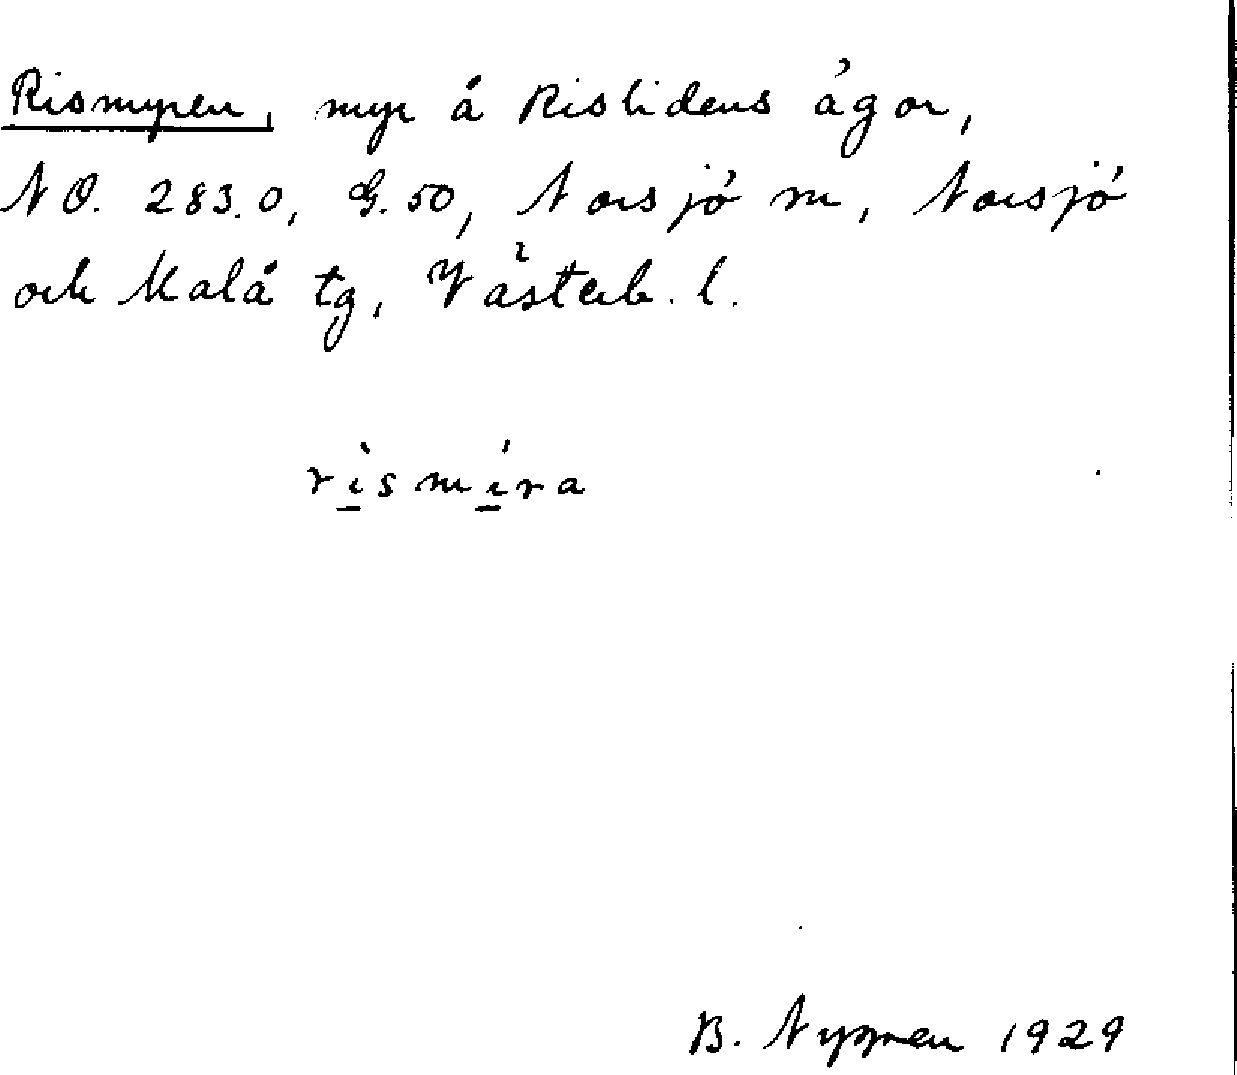 Rismyren, myr å Rislidens ägor,
NO. 283.0, G.50, Norsjö sn, Norsjö
och Malå tg, Västerb. l.
rìsmíra
B. Nygren 1929